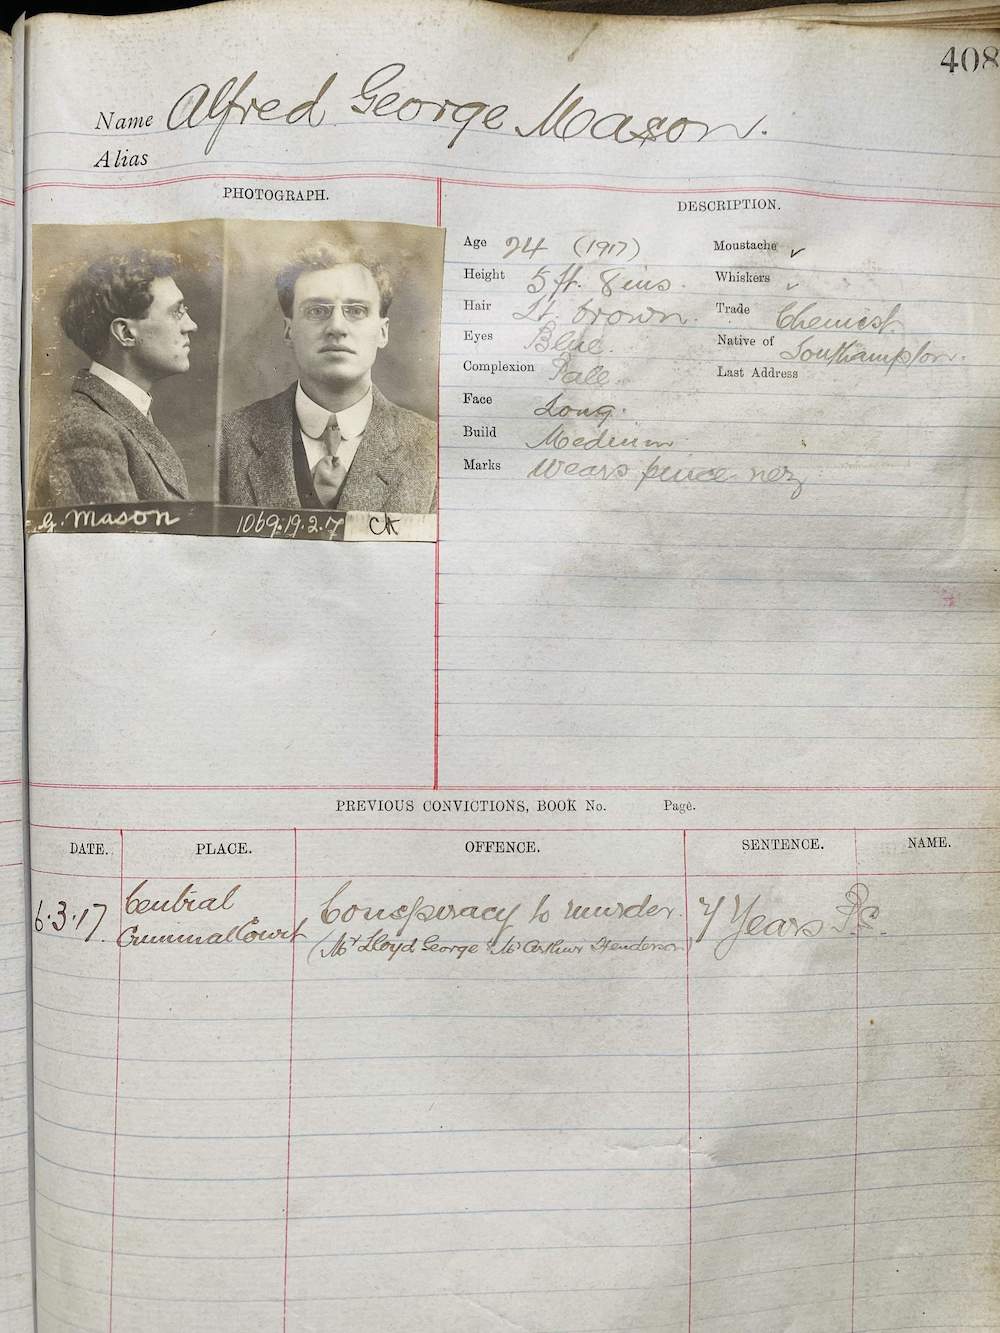 408
Name Alfred George Mason.
Alias
PHOTOGRAPH.
G. Mason 1069.19.2.17 CK
DESCRIPTION.
Age 24 (1917)
Height 5 ft. 8 ins.
Hair Lt. brown.
Eyes Blue.
Complexion Pale.
Face Long.
Build Medium
Marks Wears pince nez
Moustache ✓
Whiskers ✓
Trade Chemist
Native of Southampton.
Last Address
PREVIOUS CONVICTIONS, BOOK No. Page.
DATE. PLACE. OFFENCE. SENTENCE. NAME.
6.3.17 Central Conspiracy to murder. 7 Years P.S.
Criminal Court (Mr Lloyd George & Mr Arthur Henderson)